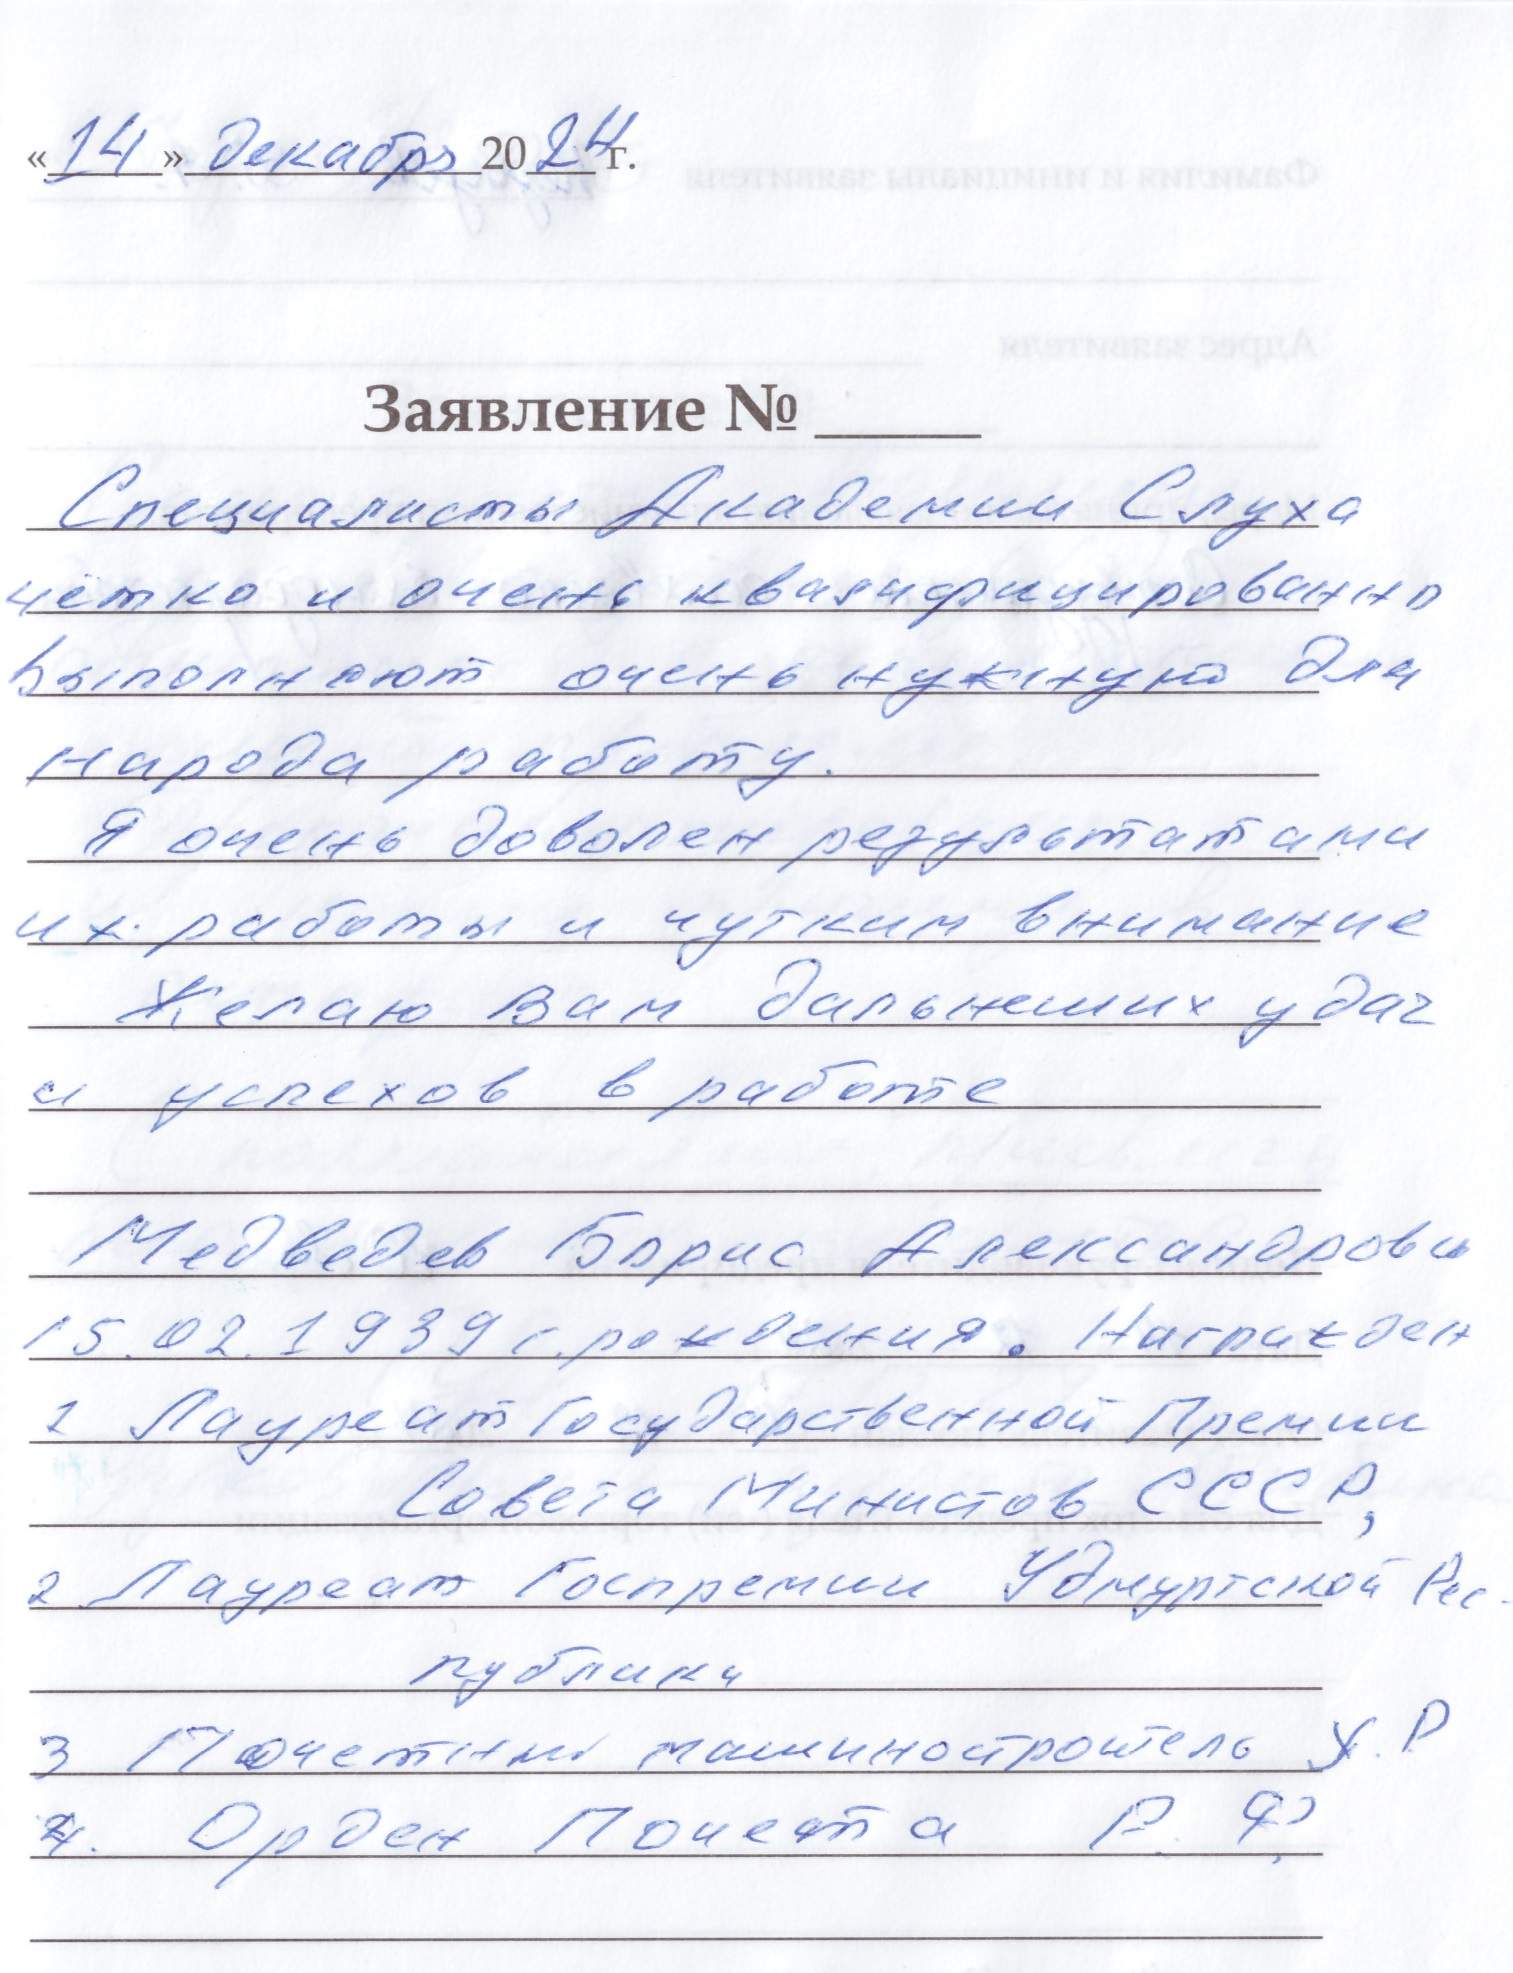 «14» декабря 2024 г.
Заявление № ____
Специалисты Академии Слуха
чётко и очень квалифицированно
выполняют очень нужную для
народа работу.
Я очень доволен результатами
их работы и чутким внимание
Желаю Вам дальнеших удач
и успехов в работе
Медведев Борис Александрович
15.02.1939 г. рождения. Награжден
1 Лауреат Государственной Премии
Совета Министов СССР,
2 Лауреат Госпремии Удмуртской Рес-
публики
3 Почетный машиностроитель У.Р
4. Орден Почета Р.Ф.